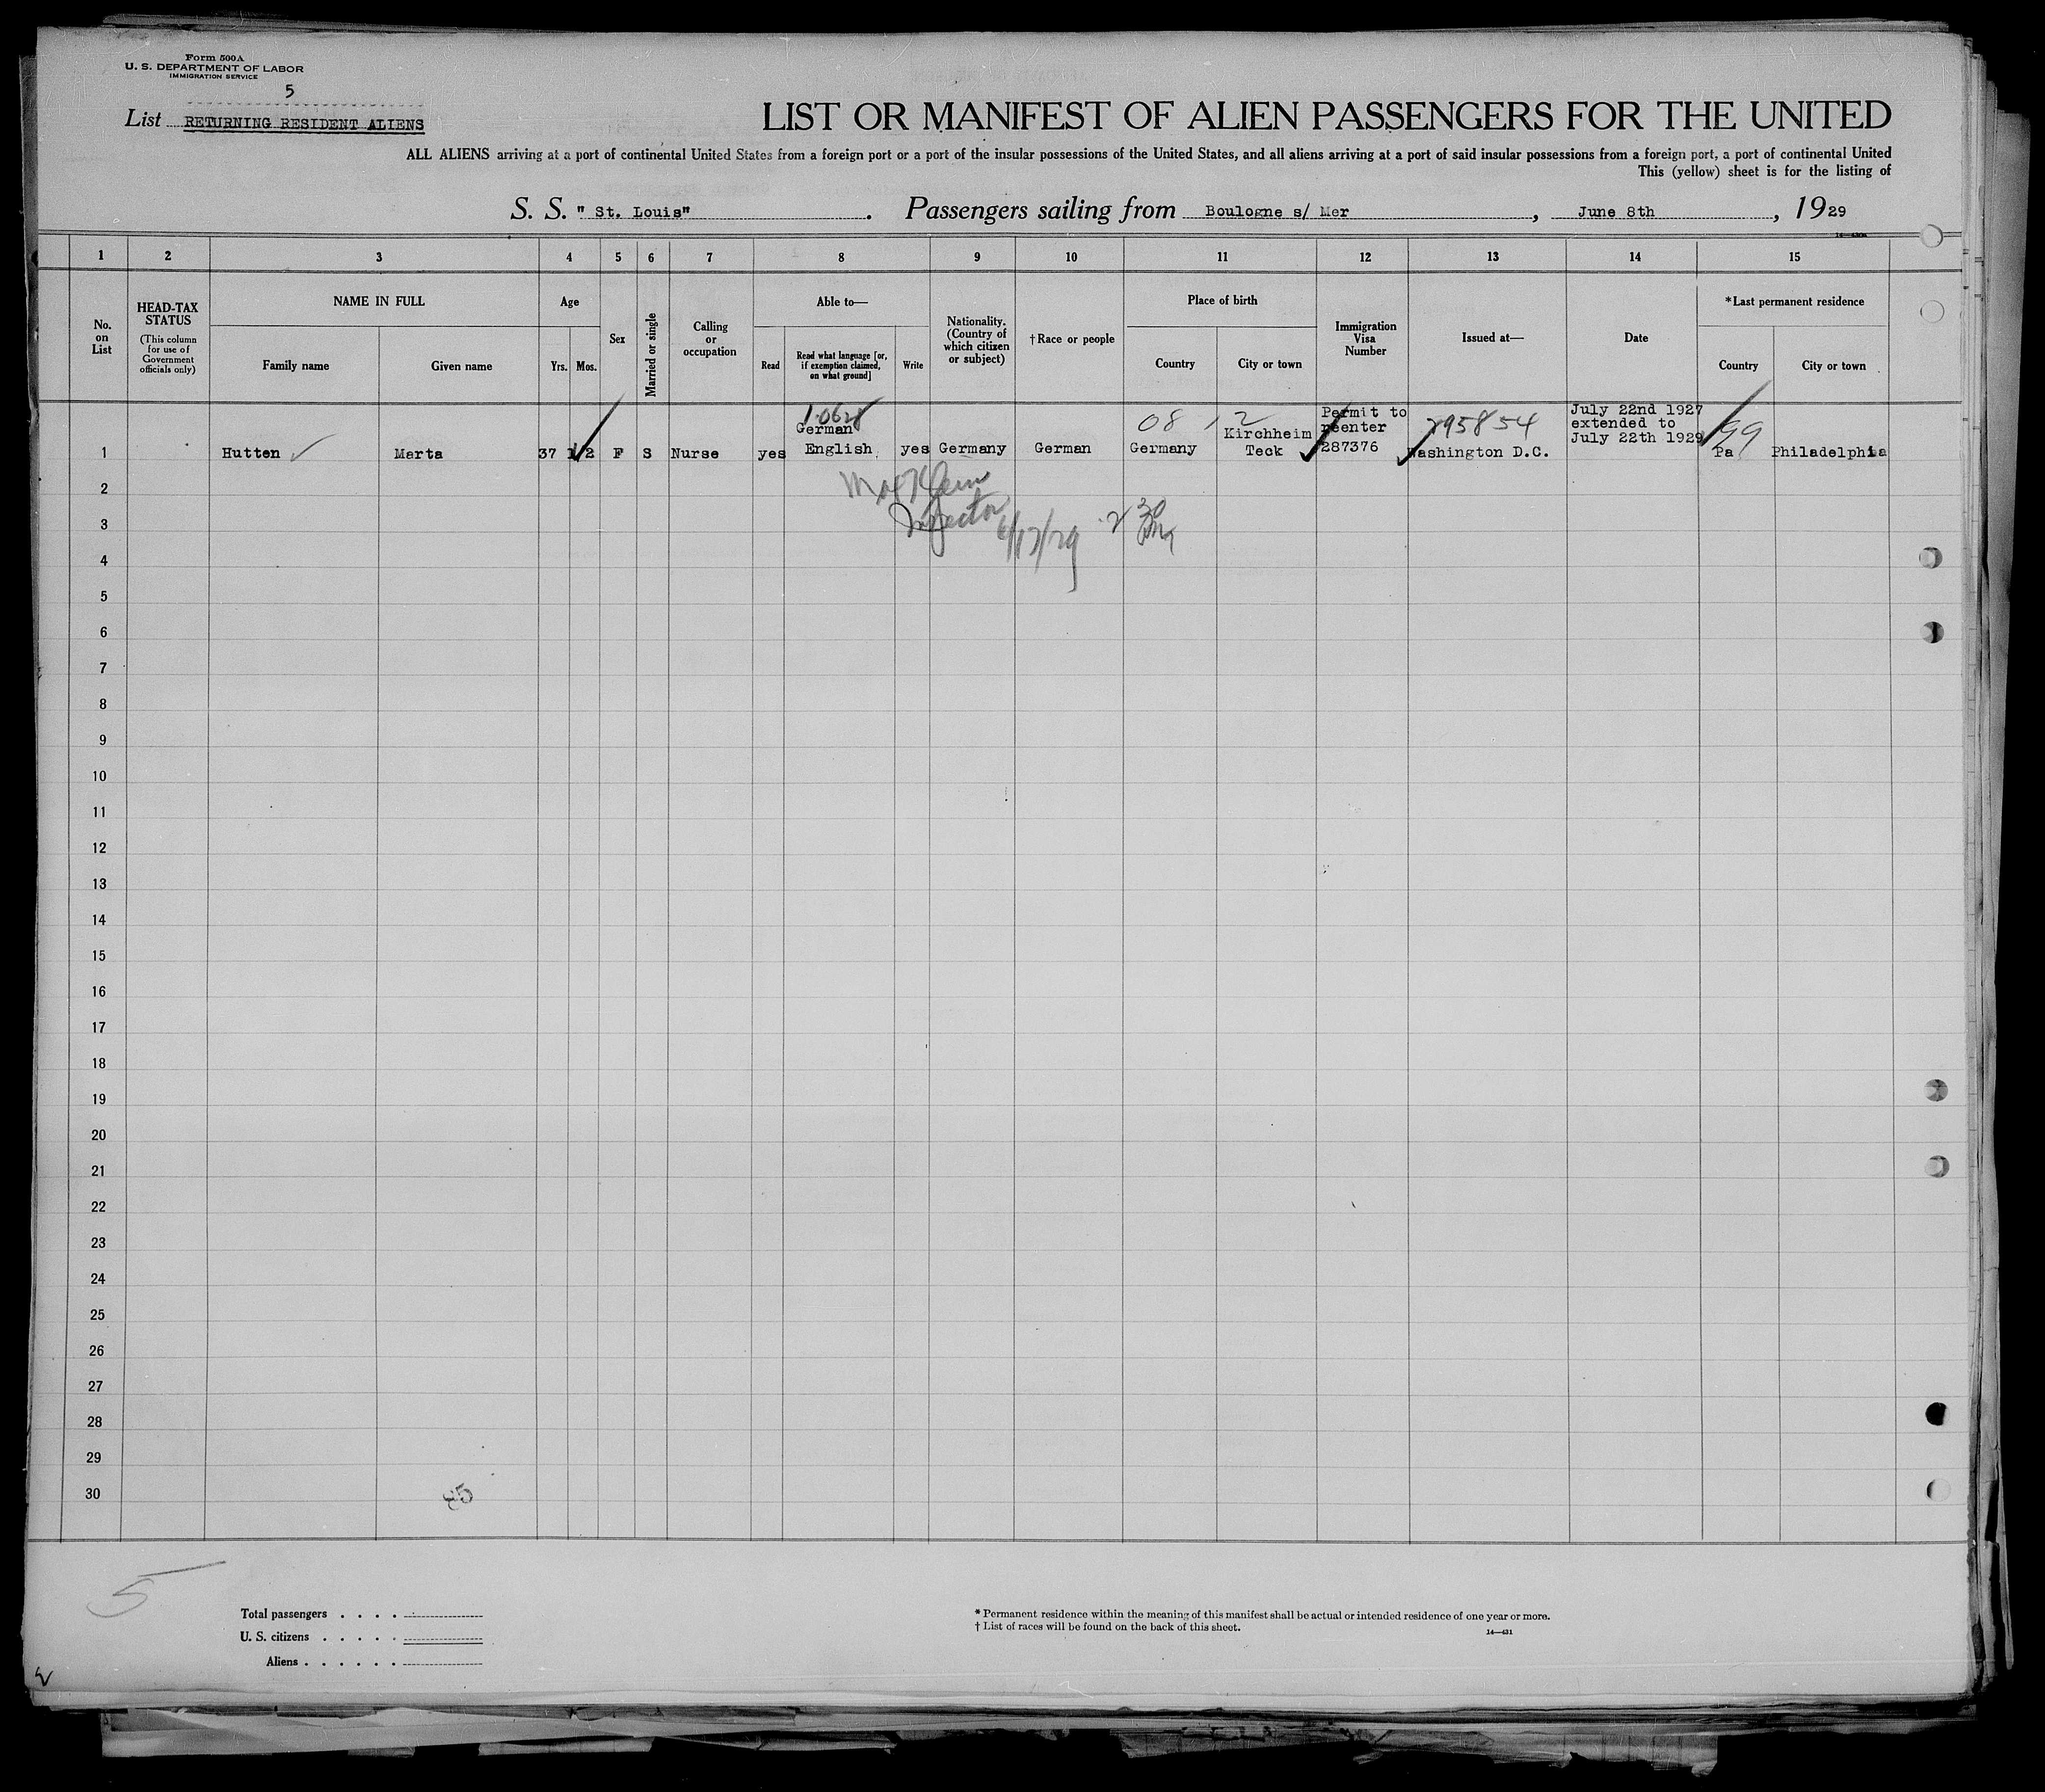 Form 500A
U. S. DEPARTMENT OF LABOR
IMMIGRATION SERVICE
5
List RETURNING RESIDENT ALIENS
LIST OR MANIFEST OF ALIEN PASSENGERS FOR THE UNITED
ALL ALIENS arriving at a port of continental United States from a foreign port or a port of the insular possessions of the United States, and all aliens arriving at a port of said insular possessions from a foreign port, a port of continental United
This (yellow) sheet is for the listing of
S. S. " St. Louis" . Passengers sailing from Boulogne s/ Mer , June 8th , 1929
1 2 3 4 5 6 7 8 9 10 11 12 13 14 15
No. on List
HEAD-TAX STATUS
(This column for use of Government officials only)
NAME IN FULL
Family name
Given name
Age
Yrs. Mos.
Sex
Married or single
Calling or occupation
Able to—
Read
Read what language [or, if exemption claimed, on what ground]
Write
Nationality. (Country of which citizen or subject)
† Race or people
Place of birth
Country
City or town
Immigration Visa Number
Issued at—
Date
*Last permanent residence
Country
City or town
1 Hutten Marta 37 F S Nurse yes German English yes Germany German Germany Kirchheim Teck Permit to reenter 287376 Washington D.C. July 22nd 1927 extended to July 22th 1929 Pa Philadelphia
08 2 295854 99
Inspector 6/17/29 2 30
2
3
4
5
6
7
8
9
10
11
12
13
14
15
16
17
18
19
20
21
22
23
24
25
26
27
28
29
30
85
5
Total passengers . . . .
U. S. citizens . . . . .
Aliens . . . . . .
* Permanent residence within the meaning of this manifest shall be actual or intended residence of one year or more.
† List of races will be found on the back of this sheet.
14—431